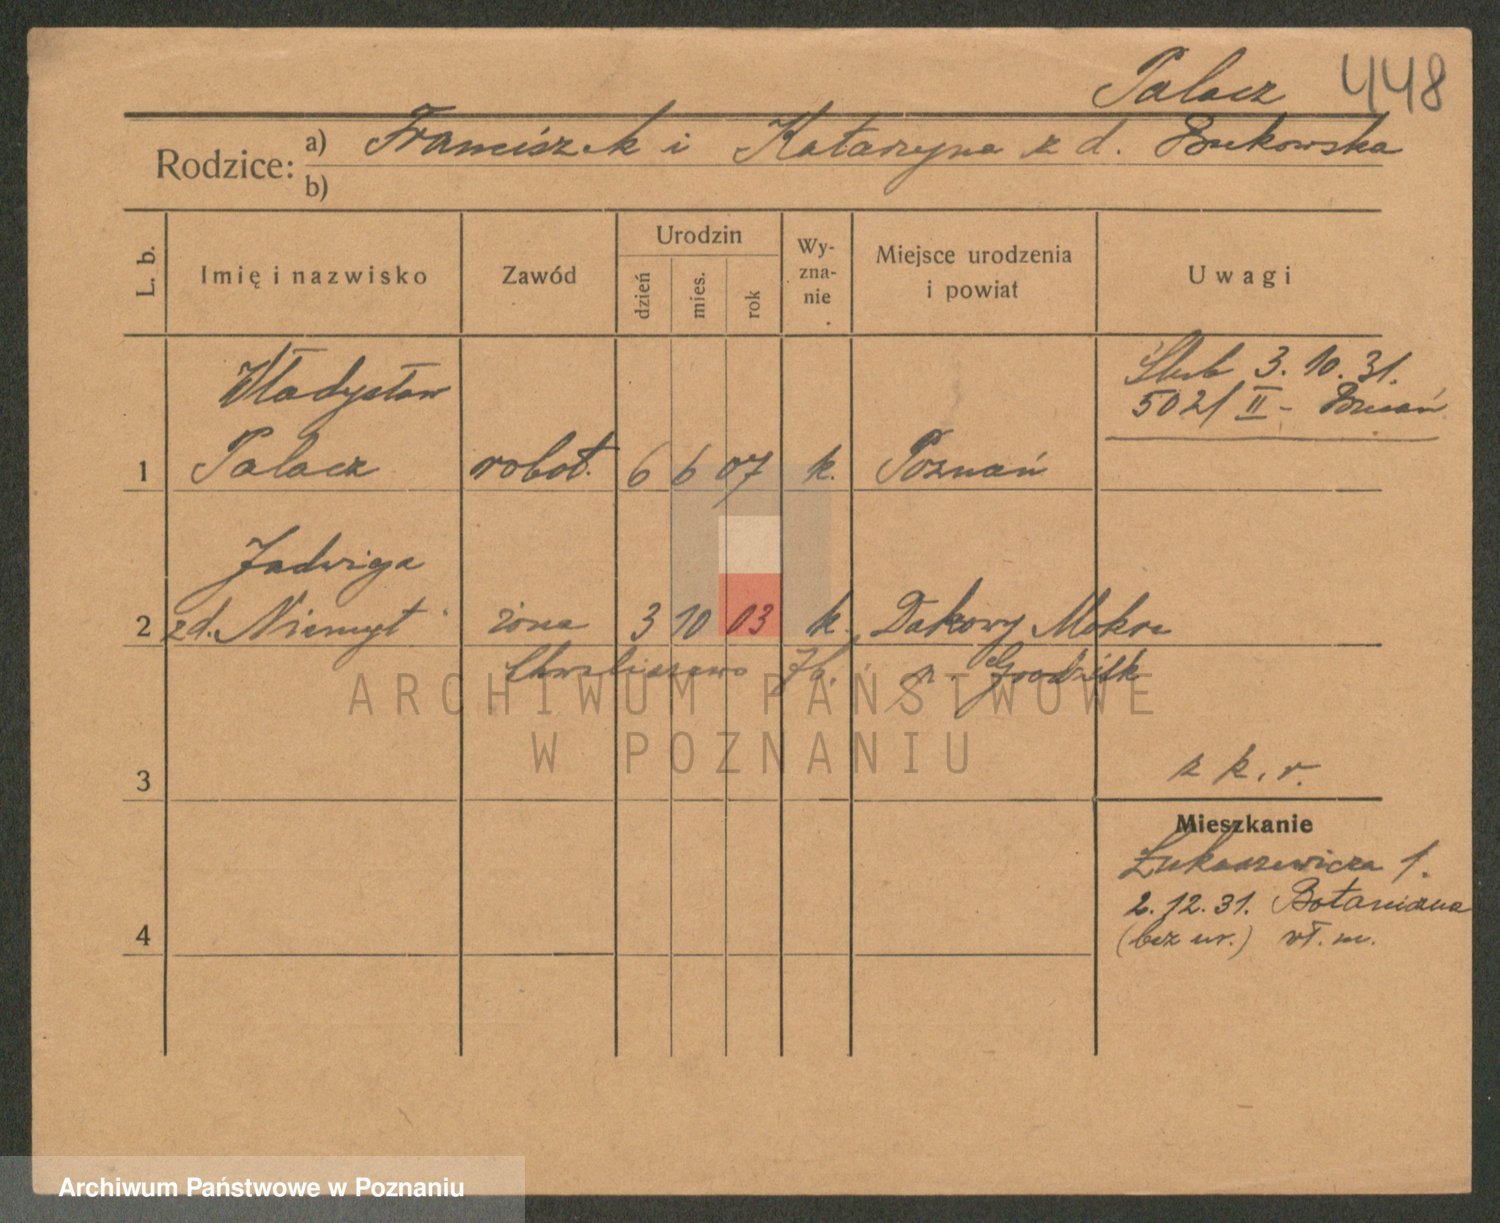 Palacz 448
Rodzice: a) Franciszek i Katarzyna z d. Bukowska
b)
L. b. Imię i nazwisko Zawód Urodzin dzień mies. rok Wy-zna-nie Miejsce urodzenia i powiat Uwagi
Ślub 3. 10. 31.
502/ II - Poznań
Władysław
1 Palacz robot. 6 6 07 k. Poznań
Jadwiga
2 zd. Niemyt żona 3 10 03 k. Dakowy Mokre
p. Grodzisk
ARCHIWUM PAŃSTWOWE
W POZNANIU
3 z k. r.
Mieszkanie
Łukaszewicza 1.
2. 12. 31. Botaniczna
4 (bez nr.) wł. m.
Archiwum Państwowe w Poznaniu